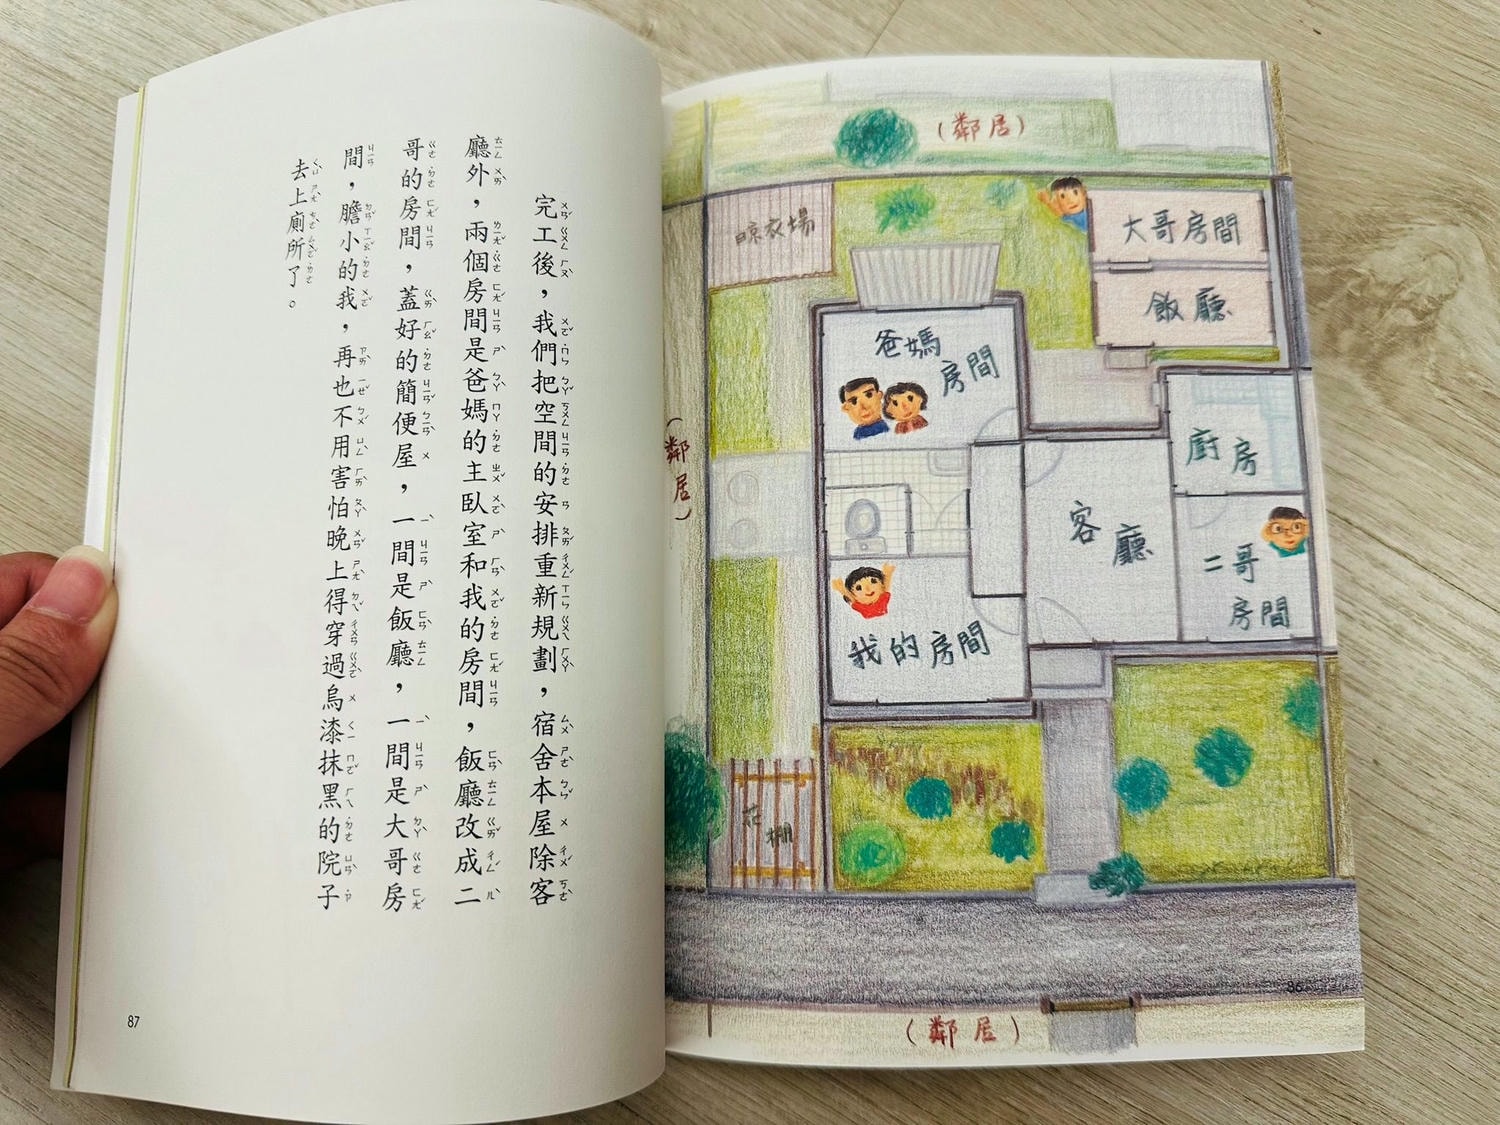 (鄰居)
大哥房間
飯廳
晾衣場
爸媽
房間
廚房
客廳
二哥
房間
我的房間
(鄰居)
花棚
(鄰居)
86
完工後，我們把空間的安排重新規劃，宿舍本屋除客
廳外，兩個房間是爸媽的主臥室和我的房間，飯廳改成二
哥的房間，蓋好的簡便屋，一間是飯廳，一間是大哥房
間，膽小的我，再也不用害怕晚上得穿過烏漆抹黑的院子
去上廁所了。
87